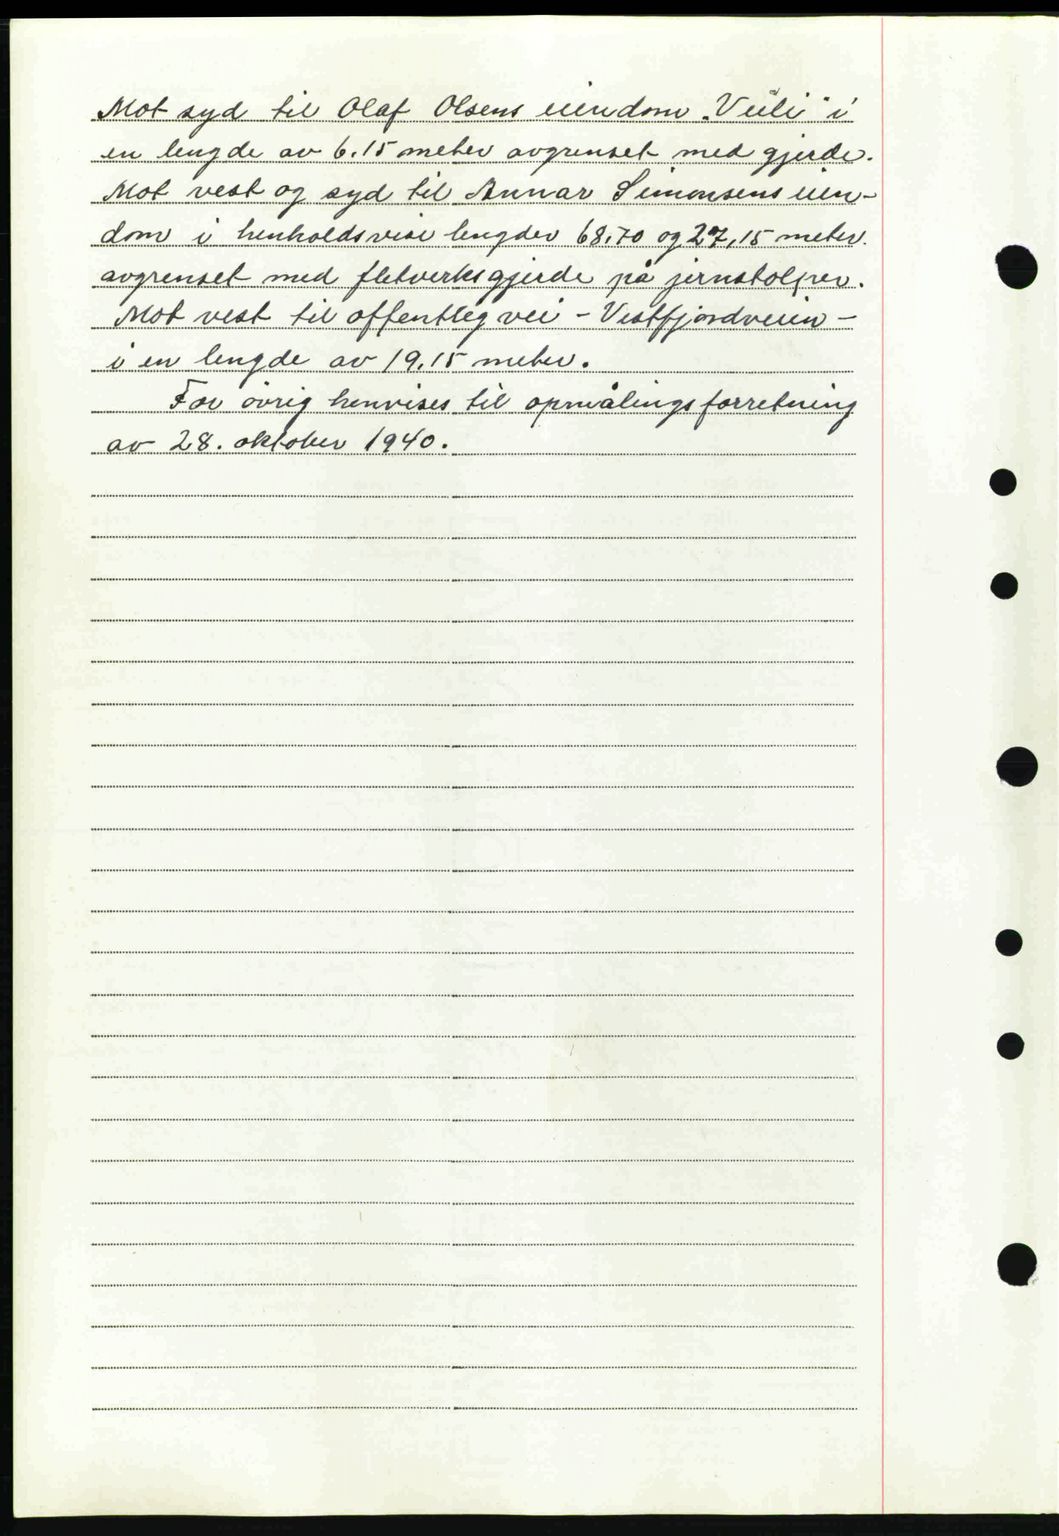 Mot syd til Olaf Olsens eiendom „Veili" i
en lengde av 6.15 meter avgrenset med gjerde.
Mot vest og syd til Annar Simonsens eien-
dom i henholdsvise lengder 68,70 og 27,15 meter.
avgrenset med fletverksgjerde på jernstolper.
Mot vest til offentlig vei - Vestfjordveien -
i en lengde av 19,15 meter.
For övrig henvises til opmålingsforretning
av 28. oktober 1940.